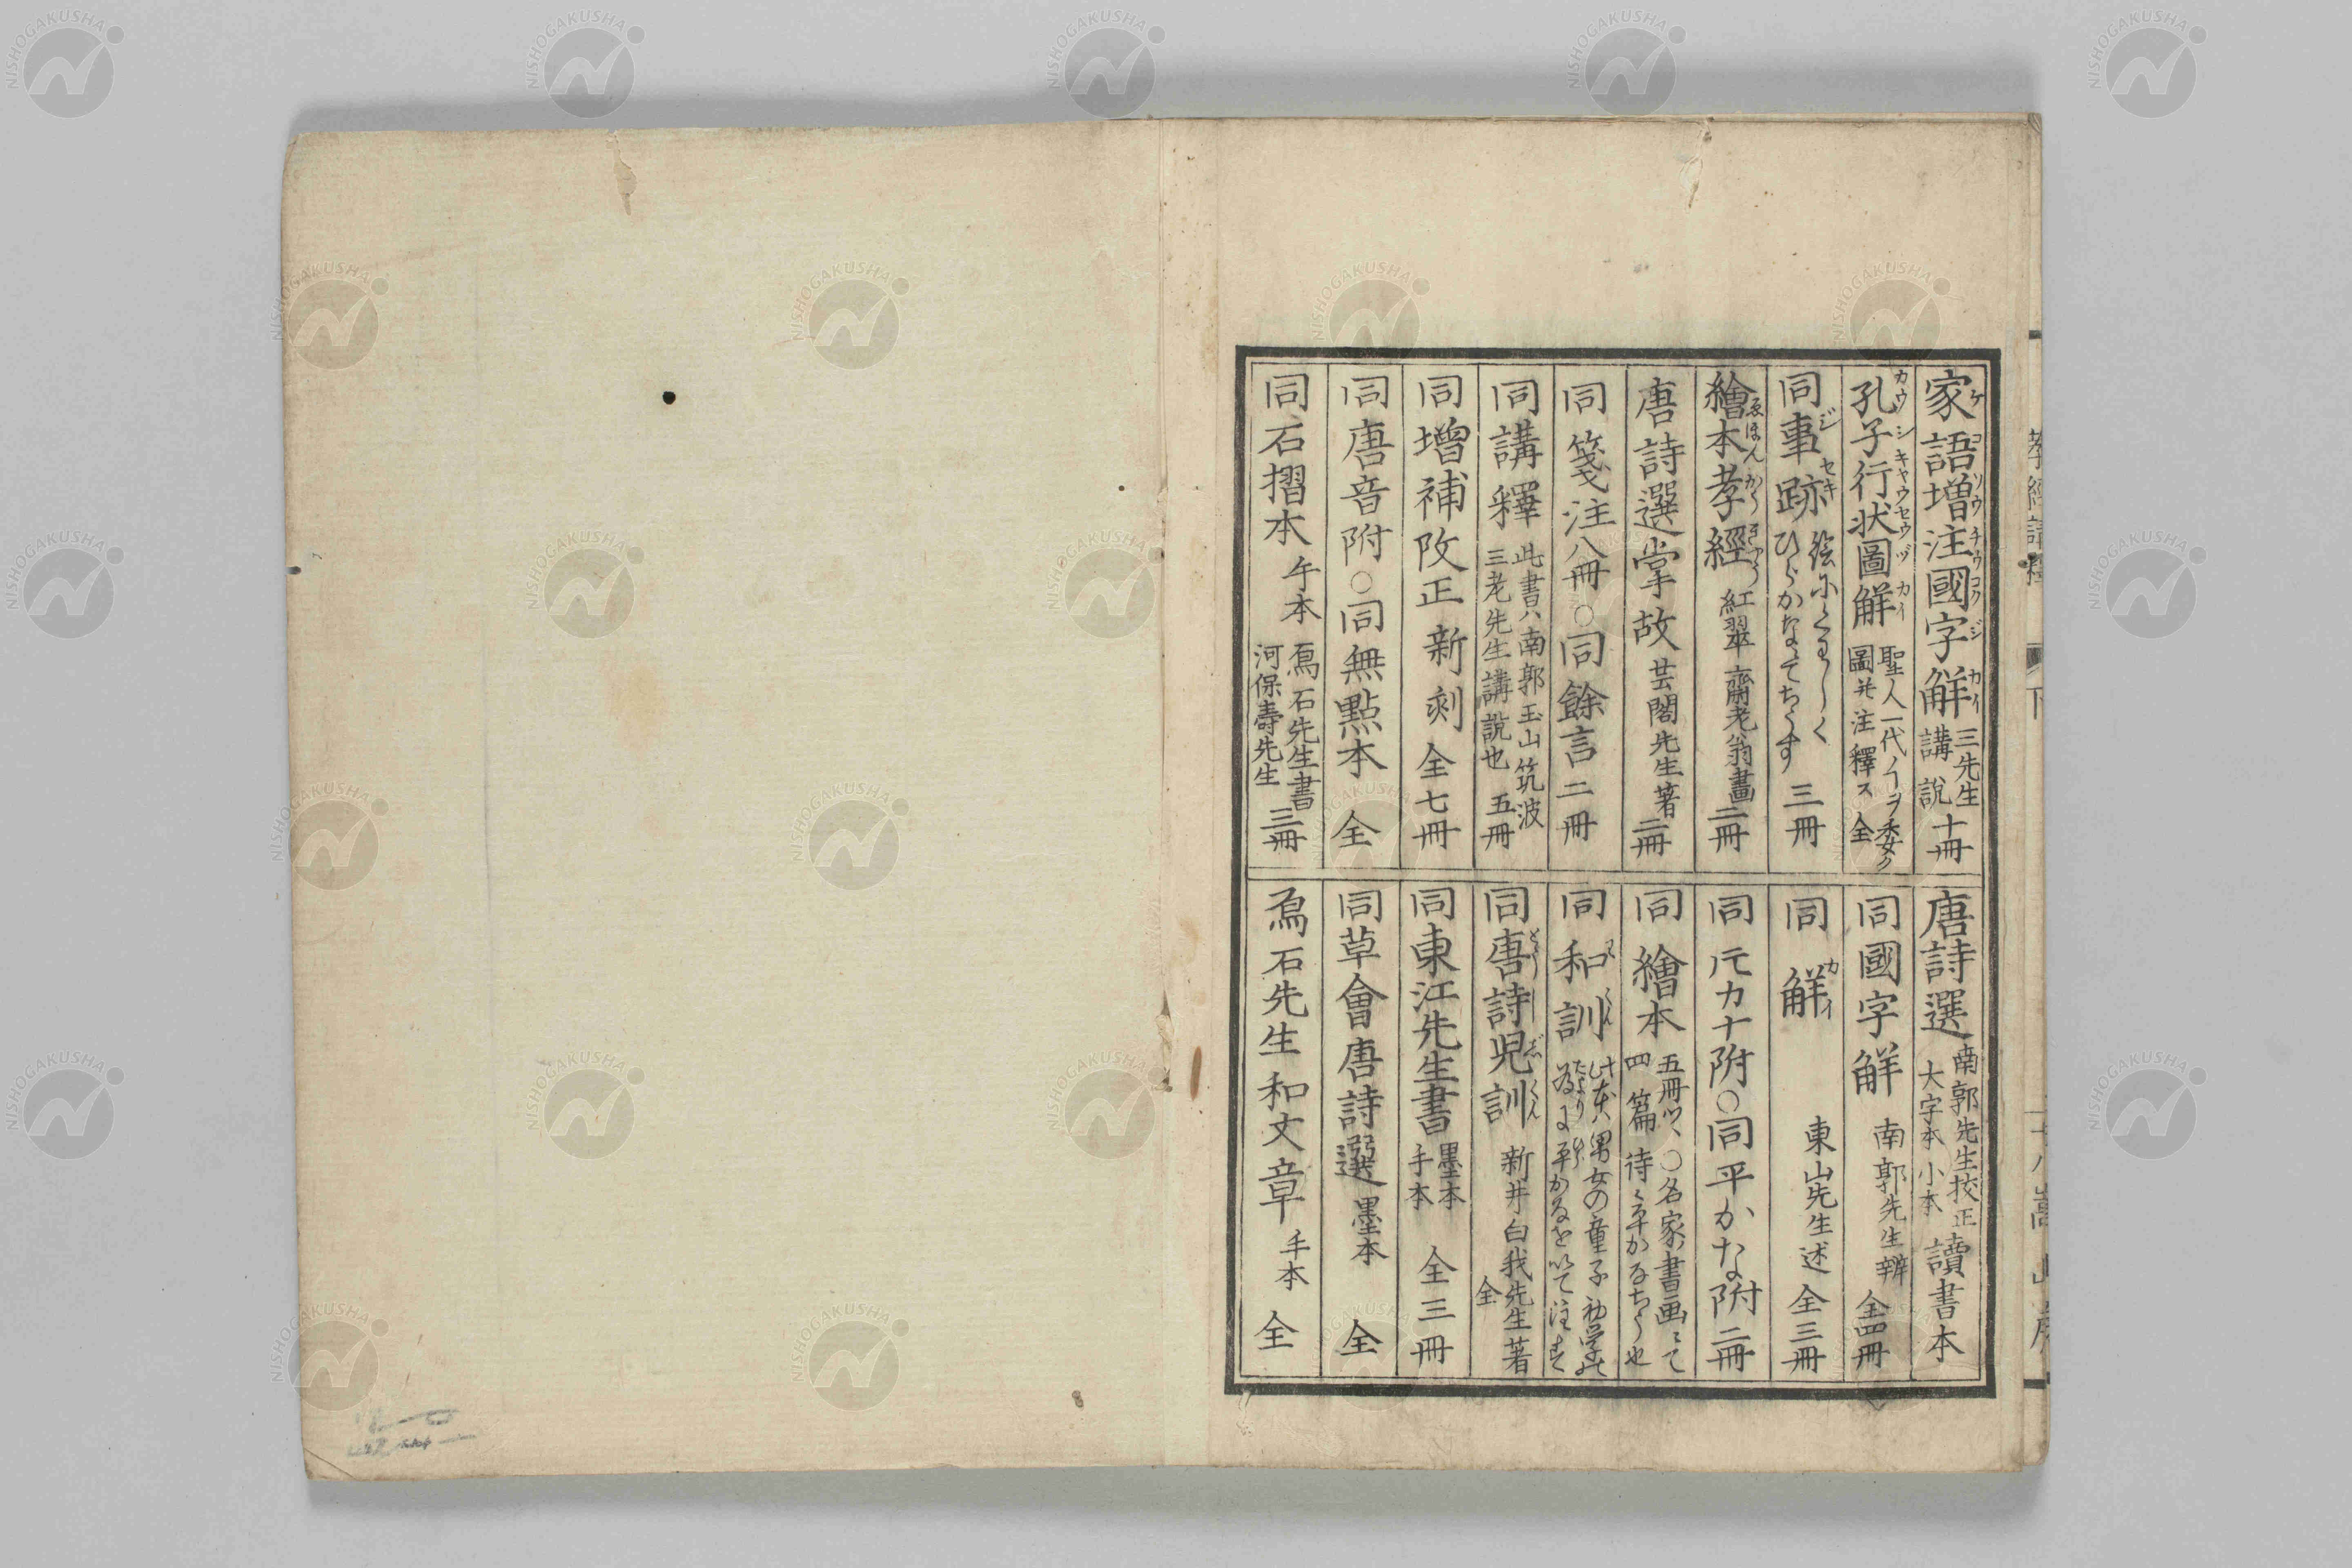 家語増注國字解 三先生講説 十冊
孔子行状圖解 聖人一代ノヿヲ委ク圖并注釋ス 全
同事跡 絵にくわしくひらかなにてちうす 三冊
繪本孝經 紅翠齋老翁畫 二冊
唐詩選掌故 芸閣先生著 二冊
同箋注八冊○同餘言 二冊
同講釋 此書ハ南郭玉山筑波三老先生講説也 五冊
同増補改正 新刻 全七冊
同唐音附○同無點本 全
同石摺本 手本 烏石先生書 河保壽先生 三冊
唐詩選 南郭先生挍正 大字本 小本 讀書本
同國字解 南郭先生辨 全四冊
同解 東山先生述 全三冊
同 冗カナ附○同平かな附 二冊
同繪本 五冊ツヽ 四篇 ○名家書画にて
同和訓 此本ハ男女の童子初学の
同唐詩児訓 新井白我先生著 全
同東江先生書 墨本 手本 全三冊
同草會唐詩選 墨本 全
烏石先生和文章 手本 全
NISHOGAKUSHA